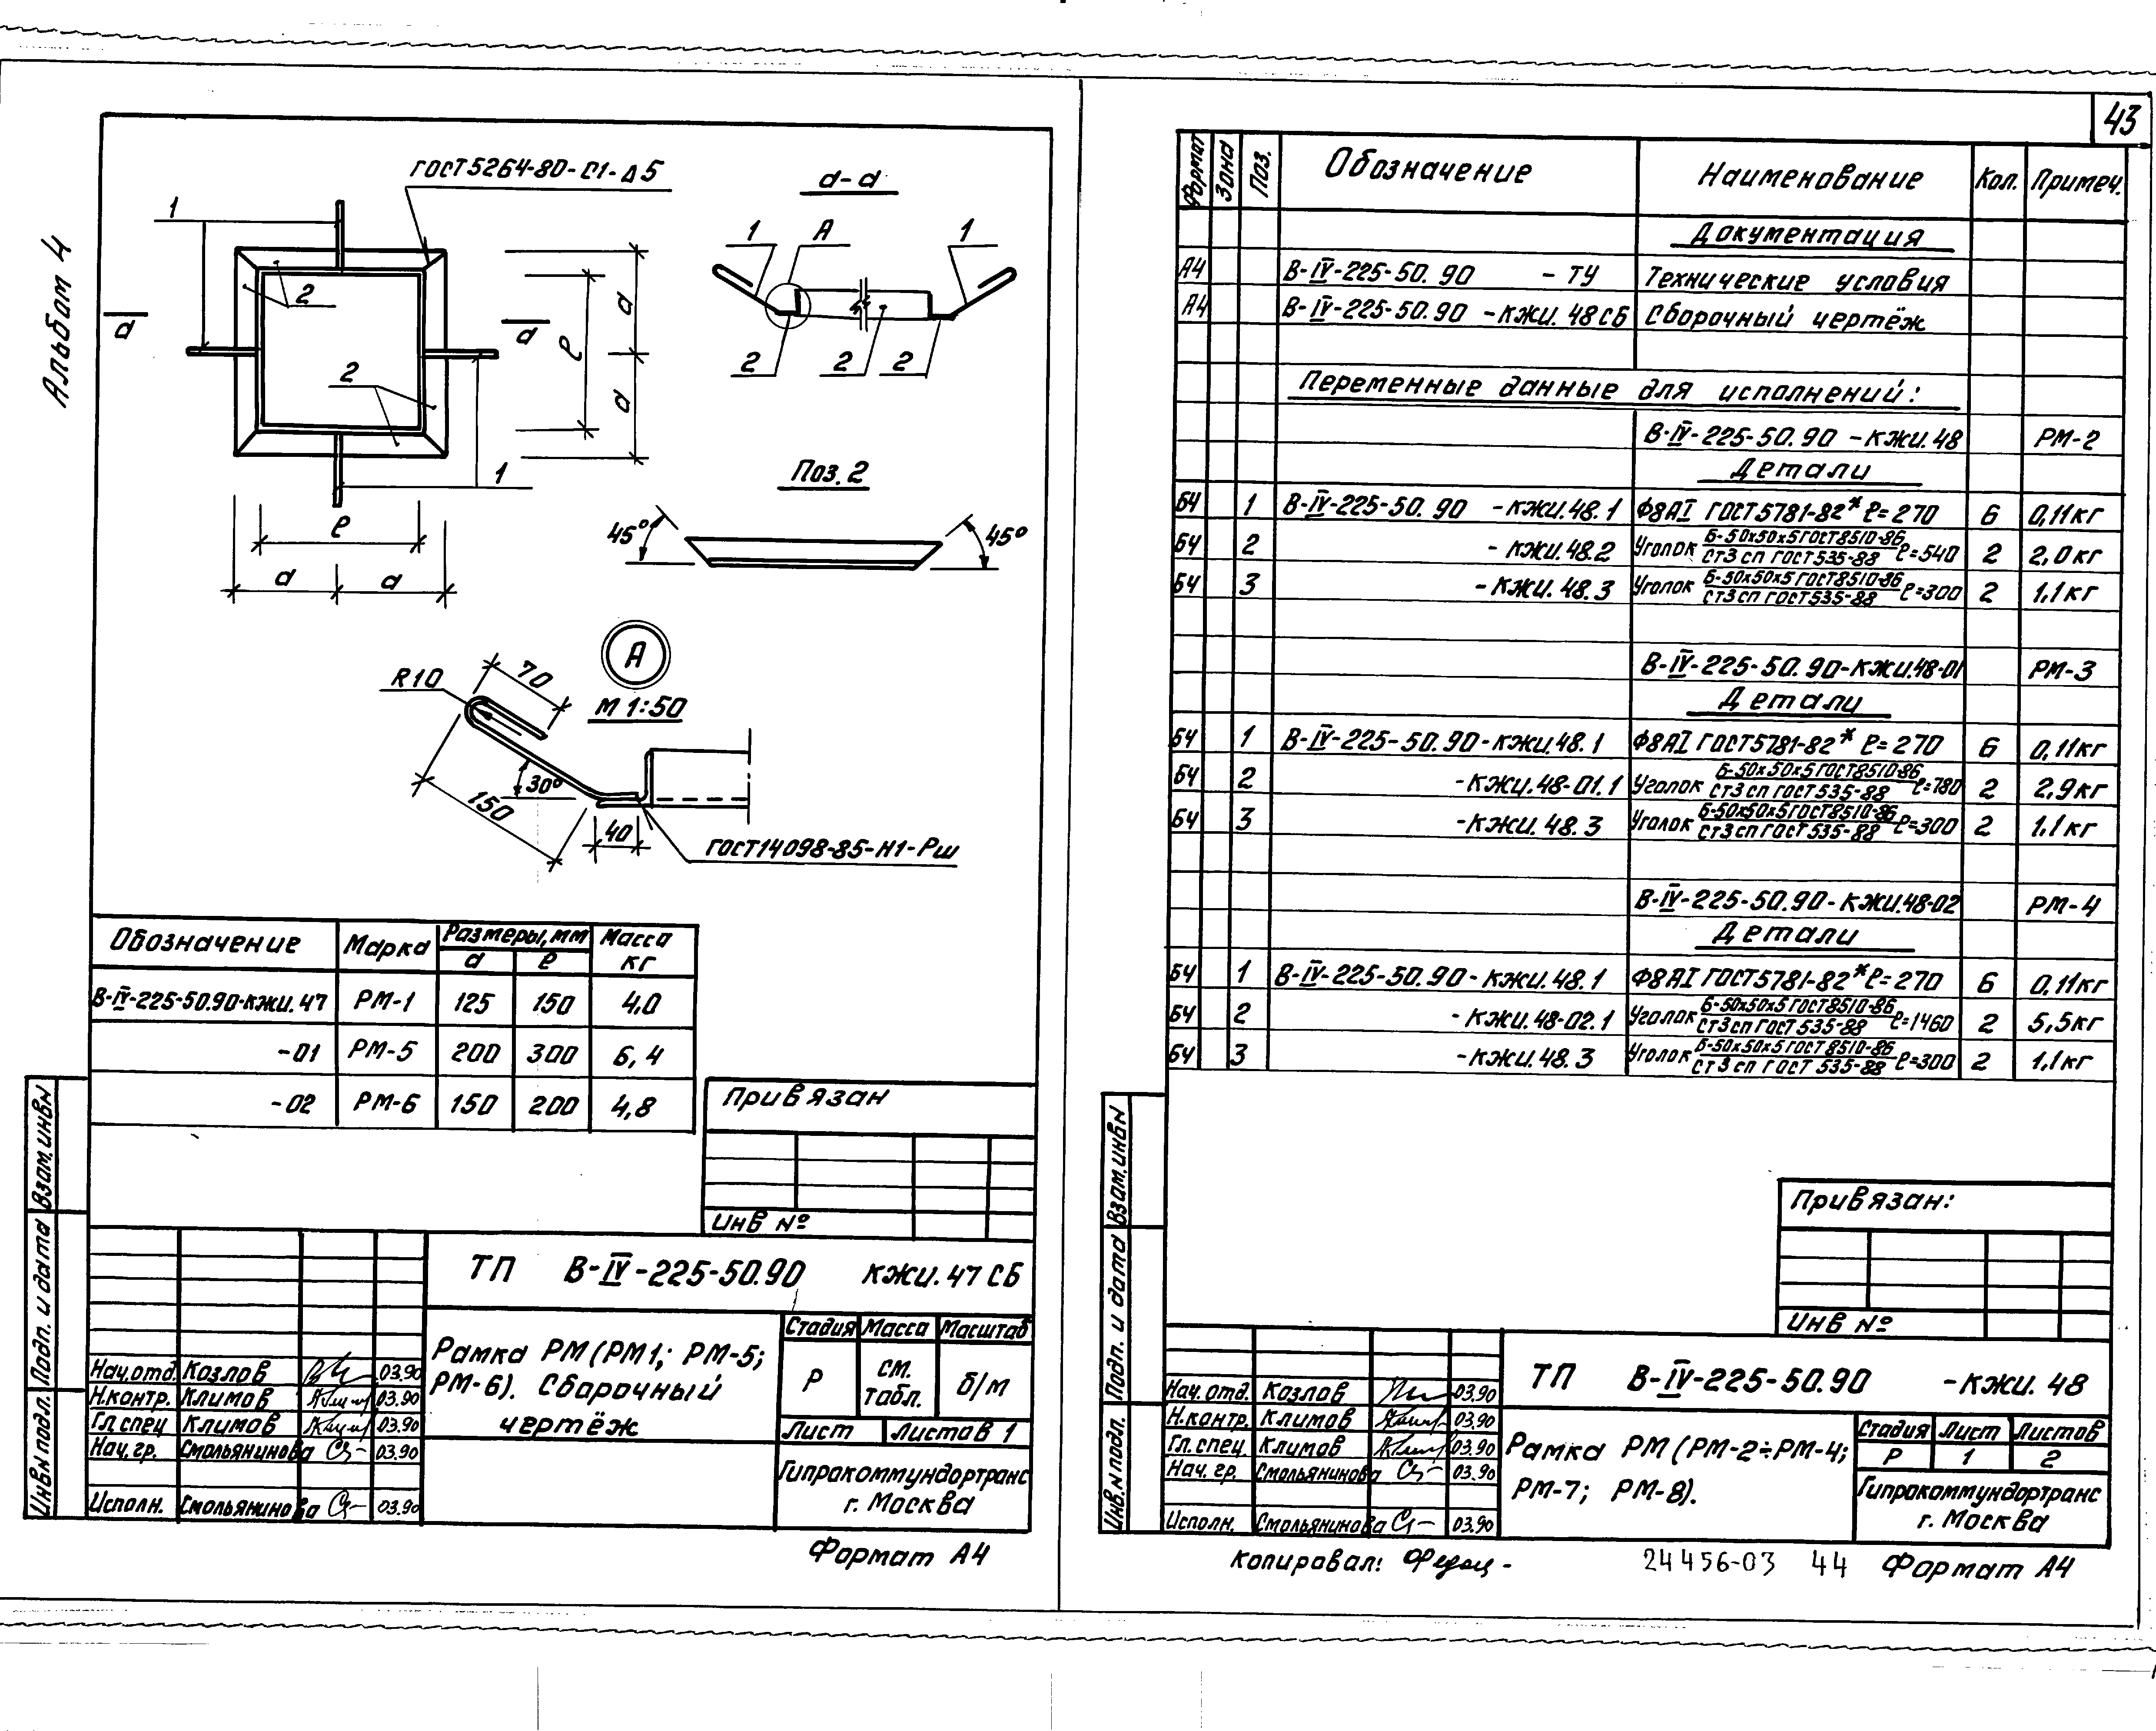 43
Альбом 4
ГОСТ 5264-80-С1-Δ5
а-а
1
2
а
а
2
ℓ
а
а
1
ℓ
а
а
1
А
1
2
2
2
Поз. 2
45°
45°
А
М 1:50
R10
70
30°
150
40
ГОСТ14098-85-Н1-Рш
Обозначение Марка Размеры, мм Масса кг
а ℓ
В-IV-225-50.90-КЖИ.47 РМ-1 125 150 4,0
-01 РМ-5 200 300 6,4
-02 РМ-6 150 200 4,8
Привязан
Инв №
Взам. инв№
Подп. и дата
Инв№ подл.
ТП В-IV-225-50.90 КЖИ.47 СБ
Нач.отд. Козлов 03.90
Н.контр. Климов 03.90
Гл.спец Климов 03.90
Нач. гр. Смольянинова 03.90
Исполн. Смольянинова 03.90
Рамка РМ (РМ1; РМ-5;
РМ-6). Сборочный
чертёж
Стадия Масса Масштаб
Р см. табл. б/м
Лист Листов 1
Гипрокоммундортранс
г. Москва
Формат А4
Формат Зона Поз. Обозначение Наименование Кол. Примеч.
Документация
А4 В-IV-225-50.90 - ТУ Технические условия
А4 В-IV-225-50.90 -КЖИ.48СБ Сборочный чертёж
Переменные данные для исполнений:
В-IV-225-50.90 -КЖИ.48 РМ-2
Детали
БЧ 1 В-IV-225-50.90 -КЖИ.48.1 Ф8АI ГОСТ5781-82* ℓ=270 6 0,11кг
БЧ 2 -КЖИ.48.2 Уголок Б-50х50х5 ГОСТ8510-86 / Ст3сп ГОСТ535-88 ℓ=540 2 2,0кг
БЧ 3 -КЖИ.48.3 Уголок Б-50х50х5 ГОСТ8510-86 / Ст3сп ГОСТ535-88 ℓ=300 2 1,1кг
В-IV-225-50.90-КЖИ.48-01 РМ-3
Детали
БЧ 1 В-IV-225-50.90-КЖИ.48.1 Ф8АI ГОСТ5781-82* ℓ=270 6 0,11кг
БЧ 2 -КЖИ.48-01.1 Уголок Б-50х50х5 ГОСТ8510-86 / Ст3сп ГОСТ535-88 ℓ=780 2 2,9кг
БЧ 3 -КЖИ.48.3 Уголок Б-50х50х5 ГОСТ8510-86 / Ст3сп ГОСТ535-88 ℓ=300 2 1,1кг
В-IV-225-50.90-КЖИ.48-02 РМ-4
Детали
БЧ 1 В-IV-225-50.90-КЖИ.48.1 Ф8АI ГОСТ5781-82* ℓ=270 6 0,11кг
БЧ 2 -КЖИ.48-02.1 Уголок Б-50х50х5 ГОСТ8510-86 / Ст3сп ГОСТ535-88 ℓ=1460 2 5,5кг
БЧ 3 -КЖИ.48.3 Уголок Б-50х50х5 ГОСТ8510-86 / Ст3сп ГОСТ535-88 ℓ=300 2 1,1кг
Привязан:
Инв №
Взам.инв№
Подп. и дата
Инв.№подл.
ТП В-IV-225-50.90 -КЖИ.48
Нач.отд. Козлов 03.90
Н.контр. Климов 03.90
Гл.спец Климов 03.90
Нач. гр. Смольянинова 03.90
Исполн. Смольянинова 03.90
Рамка РМ (РМ-2÷РМ-4;
РМ-7; РМ-8).
Стадия Лист Листов
Р 1 2
Гипрокоммундортранс
г. Москва
Копировал: 24456-03 44 Формат А4